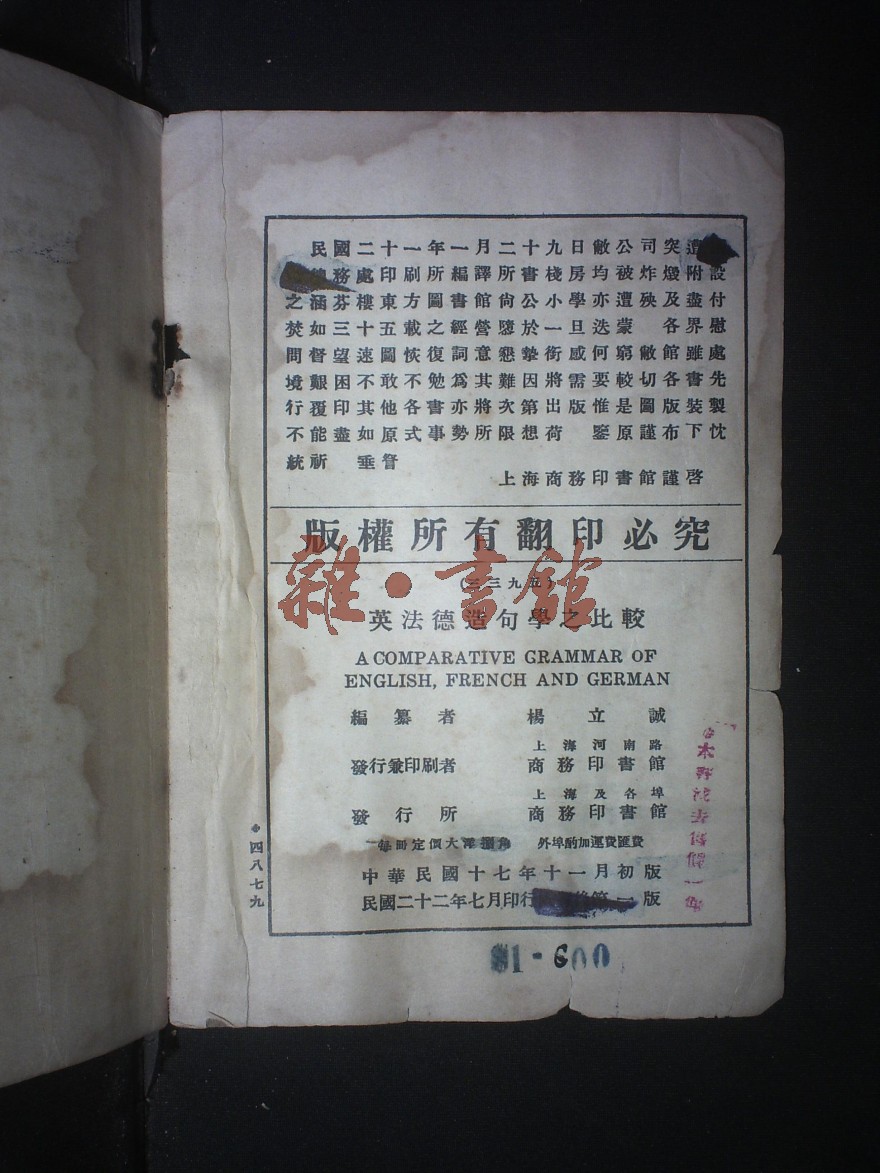 民國二十一年一月二十九日敝公司突遭
務處印刷所編譯所書棧房均被炸燬附設
之涵芬樓東方圖書館尚公小學亦遭殃及盡付
焚如三十五載之經營隳於一旦迭蒙 各界慰
問督望速圖恢復詞意懇摯銜感何窮敝館雖處
境艱困不敢不勉爲其難因將需要較切各書先
行覆印其他各書亦將次第出版惟是圖版裝製
不能盡如原式事勢所限想荷 鑒原謹布下忱
統祈 垂詧
上海商務印書館謹啓
版權所有翻印必究
雜·書館
英法德造句學之比較
A COMPARATIVE GRAMMAR OF
ENGLISH, FRENCH AND GERMAN
編纂者 楊立誠
上海河南路
發行兼印刷者 商務印書館
上海及各埠
發行所 商務印書館
每冊定價大洋 角 外埠酌加運費匯費
中華民國十七年十一月初版
民國二十二年七月印行 版
四八七九
91-600